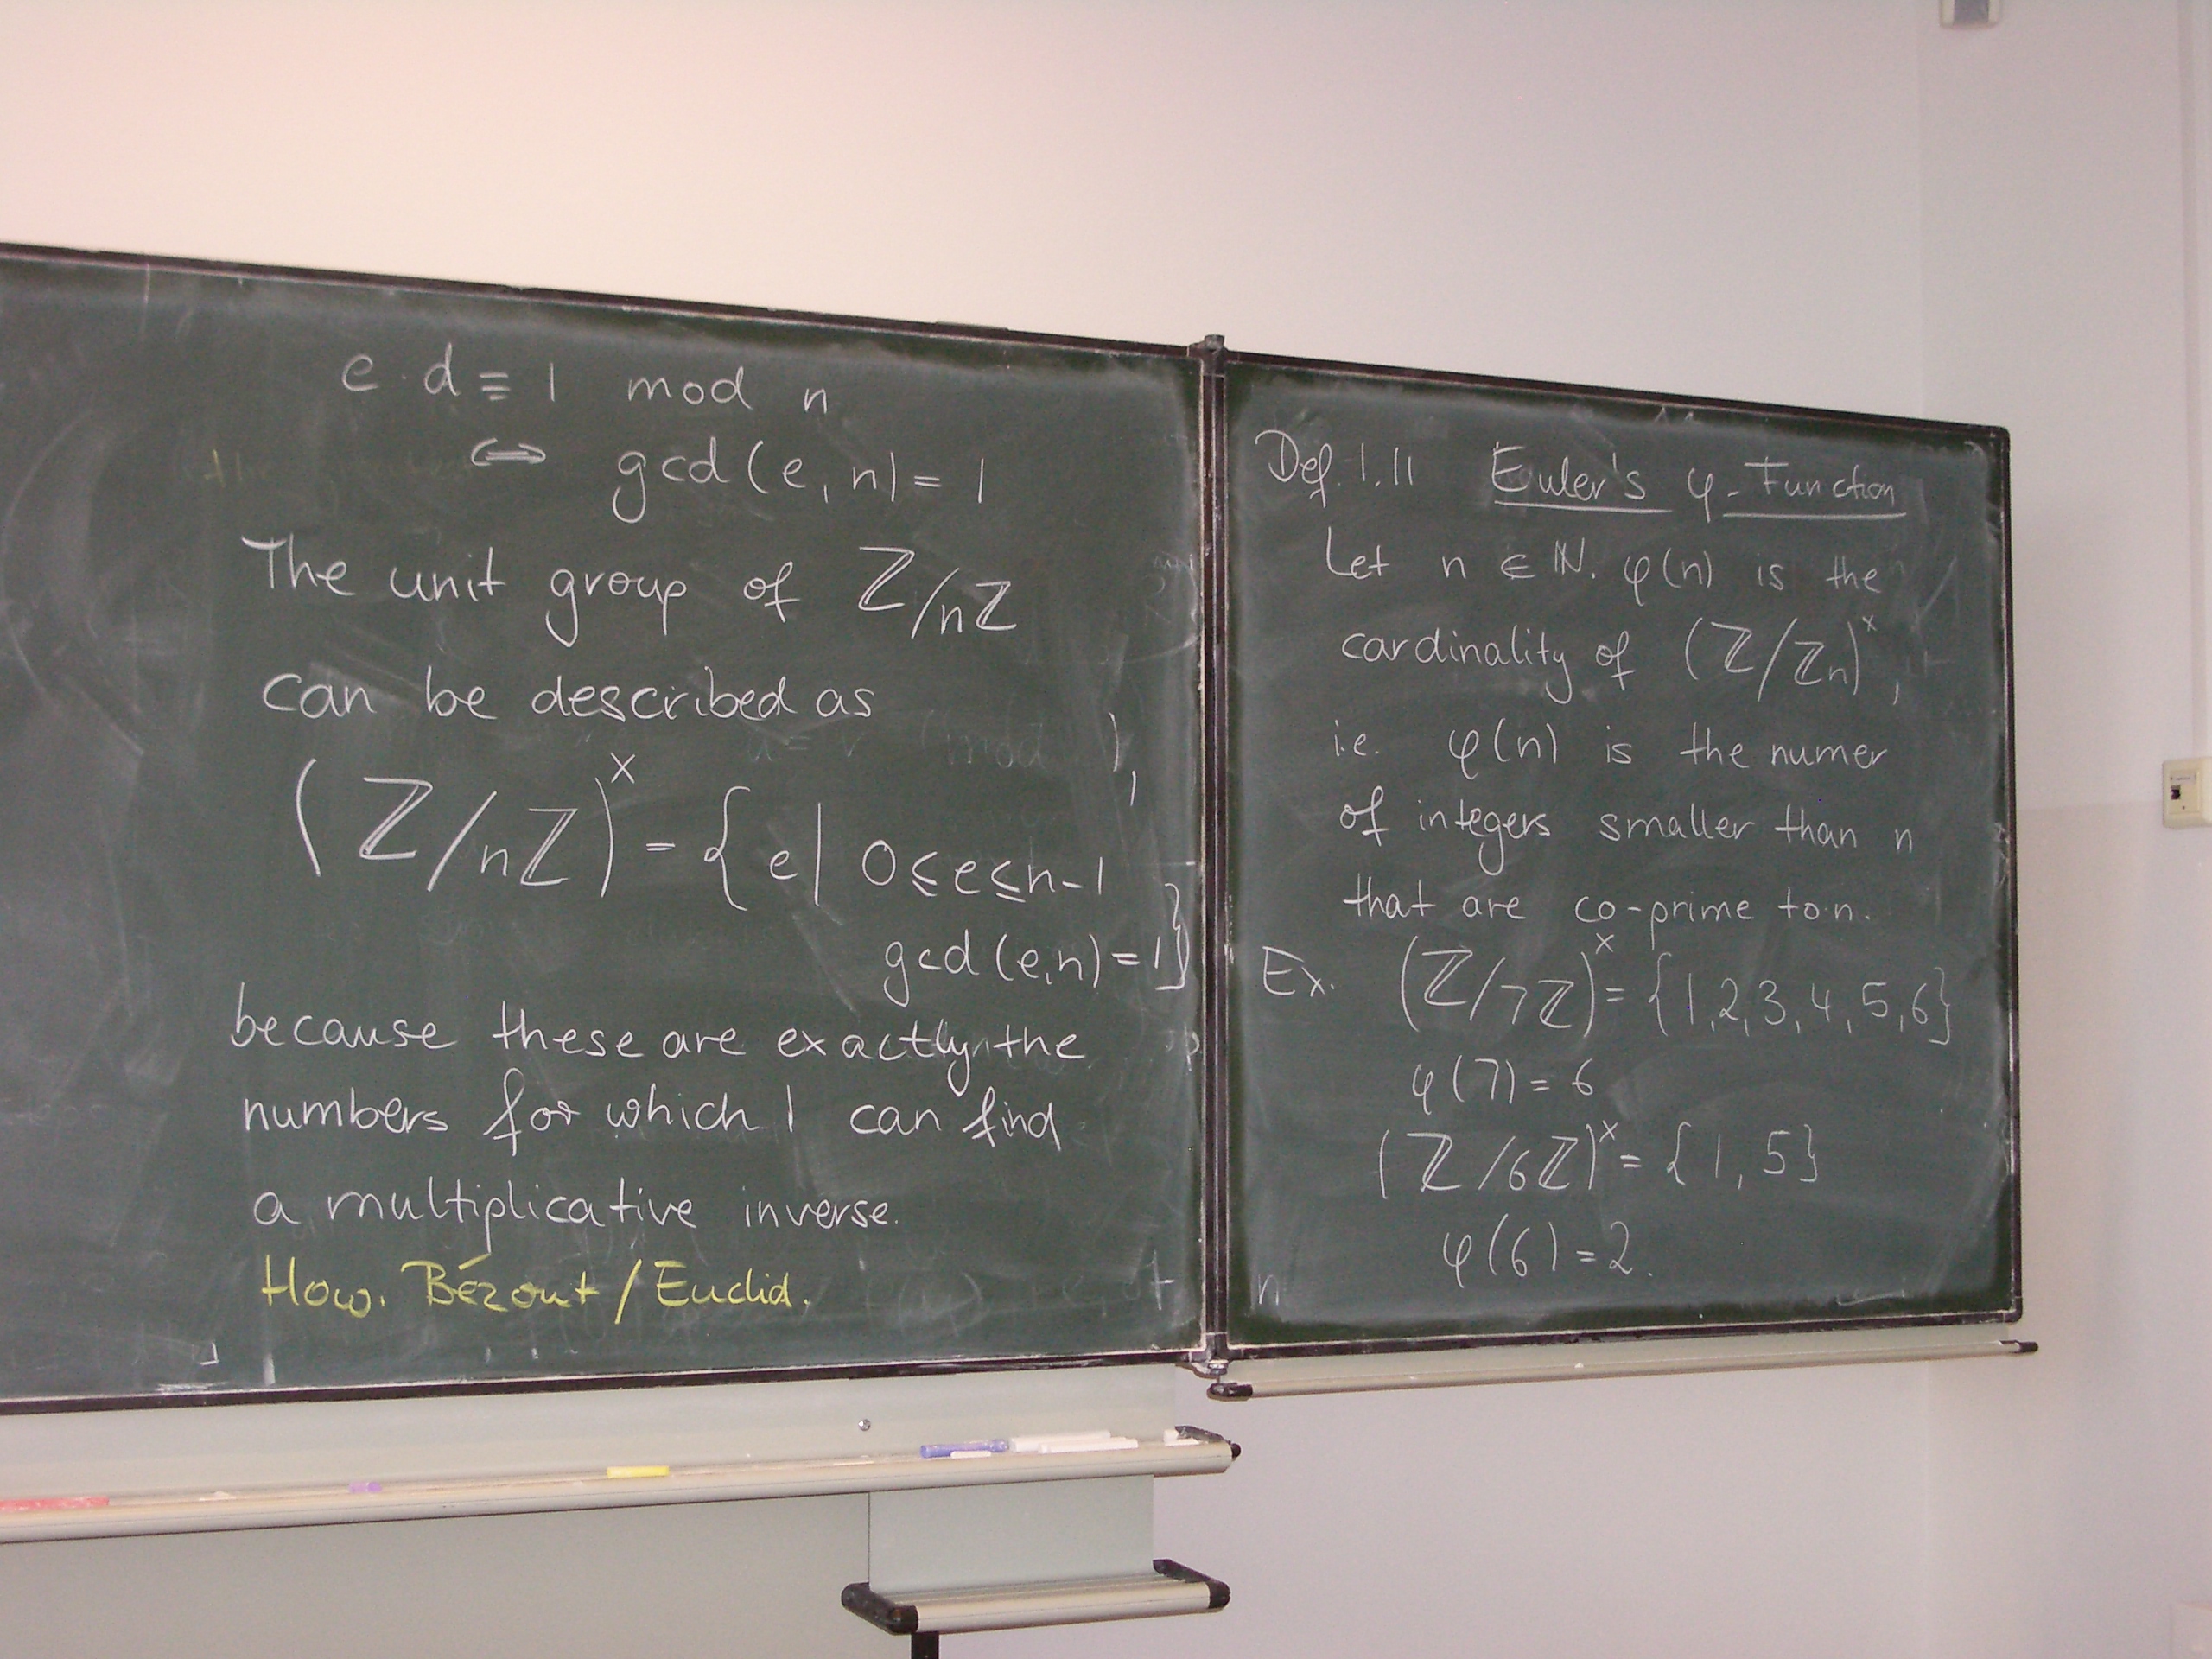 e·d ≡ 1 mod n
⇔ gcd(e,n) = 1
The unit group of ℤ/nℤ
can be described as
(ℤ/nℤ)^x = { e | 0 ≤ e ≤ n-1,
gcd(e,n) = 1}
because these are exactly the
numbers for which I can find
a multiplicative inverse.
How. Bézout / Euclid.
Def. 1.11 Euler's φ-Function
Let n ∈ ℕ. φ(n) is the
cardinality of (ℤ/ℤn)^x,
i.e. φ(n) is the numer
of integers smaller than n
that are co-prime to n.
Ex. (ℤ/7ℤ)^x = {1,2,3,4,5,6}
φ(7) = 6
(ℤ/6ℤ)^x = {1,5}
φ(6) = 2.